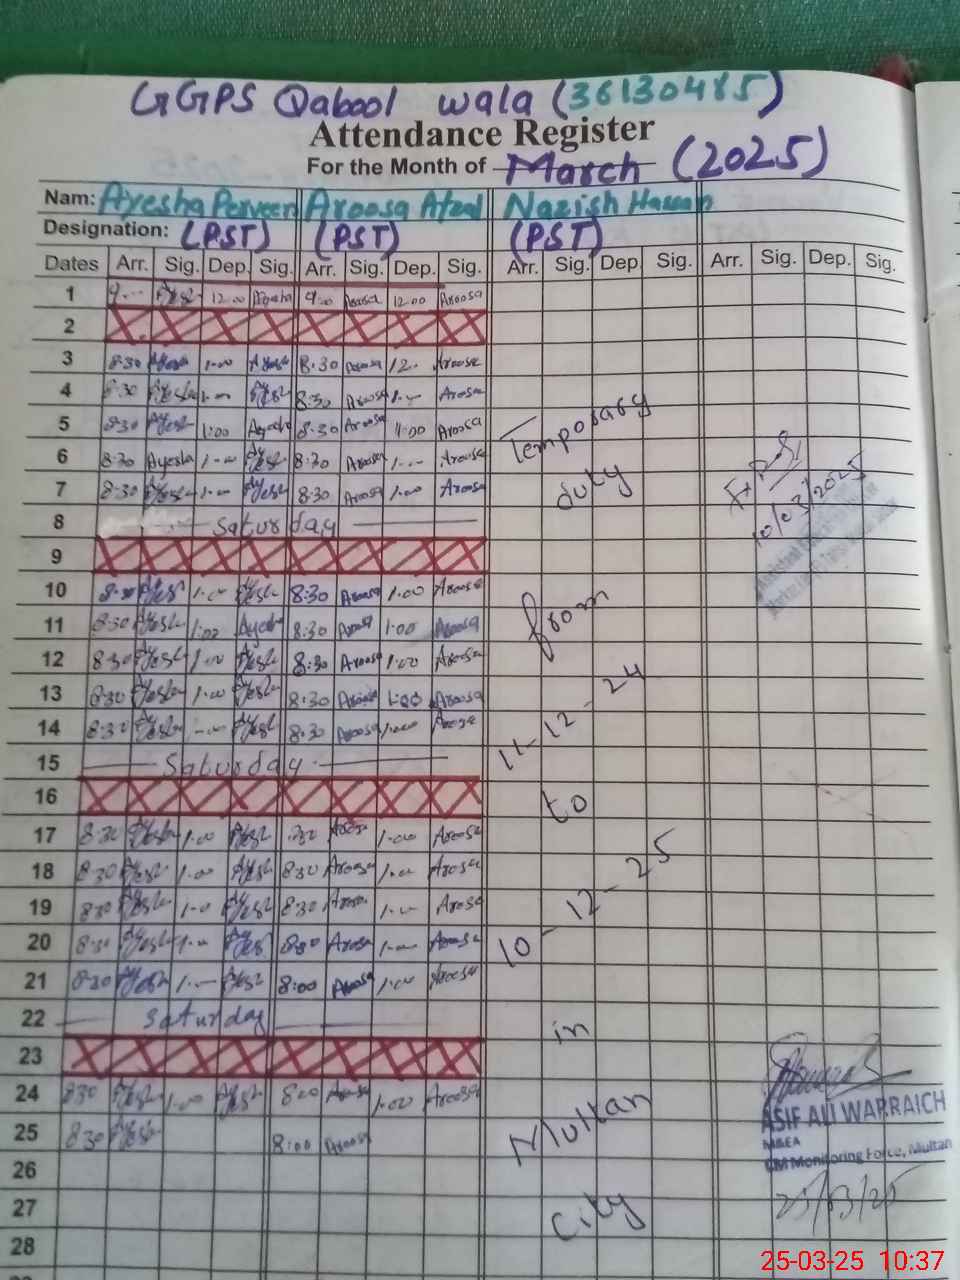 GGPS Qabool wala (36130485)
Attendance Register
For the Month of March (2025)
Nam: Ayesha Parveen Aroosa Afzal Nazish Hassan
Designation: (PST) (PST) (PST)
Dates Arr. Sig. Dep. Sig. Arr. Sig. Dep. Sig. Arr. Sig. Dep. Sig. Arr. Sig. Dep. Sig.
1 9 12:00 Ayesha 9:00 Aroosa 12:00 Aroosa
2
3 8:30 Ayesha 1:00 Ayesha 8:30 Aroosa 12 Aroosa
4 8:30 Ayesha 8:30 Aroosa 1 Aroosa
5 8:30 Ayesha 1:00 Ayesha 8:30 Aroosa 1:00 Aroosa
Temporary
6 8:30 Ayesha 1:00 Ayesha 8:30 Aroosa 1 Aroosa
7 8:30 Ayesha 1:00 Ayesha 8:30 Aroosa 1:00 Aroosa
duty
10/03/2025
8 Saturday
9
10 8:30 Ayesha 1:00 Ayesha 8:30 Aroosa 1:00 Aroosa
from
11 8:30 Ayesha 1:00 Ayesha 8:30 Aroosa 1:00 Aroosa
12 8:30 Ayesha 1:00 Ayesha 8:30 Aroosa 1:00 Aroosa
13 8:30 Ayesha 1:00 Ayesha 8:30 Aroosa 1:00 Aroosa
14 8:30 Ayesha Ayesha 8:30 Aroosa 1:00 Aroosa
11-12-24
15 Saturday
16
to
17 8:30 Ayesha 1:00 Ayesha Aroosa 1:00 Aroosa
18 8:30 Ayesha 1:00 Ayesha 8:30 Aroosa 1 Aroosa
19 8:30 Ayesha 1:00 Ayesha 8:30 Aroosa 1 Aroosa
10-12-25
20 8:30 Ayesha 1 Ayesha Aroosa 1:00 Aroosa
21 8:30 Ayesha 1 Ayesha 8:00 Aroosa 1:00 Aroosa
22 Saturday
in
23
24 8:30 Ayesha 1:00 Ayesha 8:00 Aroosa 1:00 Aroosa
25 8:30 Ayesha 8:00 Aroosa
Multan
ASIF ALI WARRAICH
M&EA
CM Monitoring Force, Multan
26
27
City
25/03/25
28
25-03-25 10:37